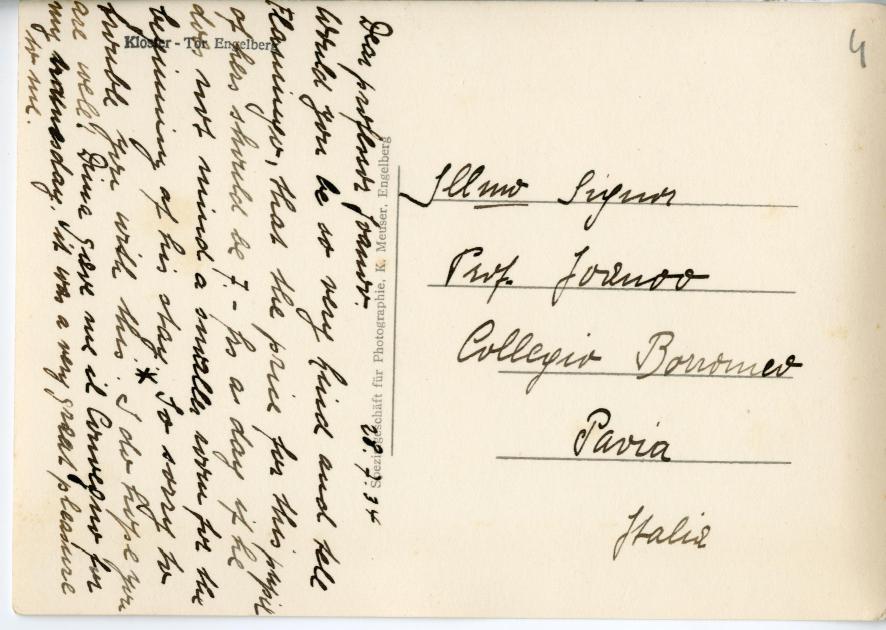 Kloster - Tor Engelberg
4
Spezialgeschäft für Photographie, K. Meuser, Engelberg
28. 7. 34
Dear professor
Would you be so very kind and tell
Flamingo, that the price for this pupil
of hers should be 7 - frs a day if he
does not mind a smaller room for the
beginning of his stay * So sorry to
trouble you with this. I do hope you
are well! Duna gave me il Convegno for
my namesday. It was a very great pleasure
to me.
Illmo Signor
Prof.
Collegio Borromeo
Pavia
Italia